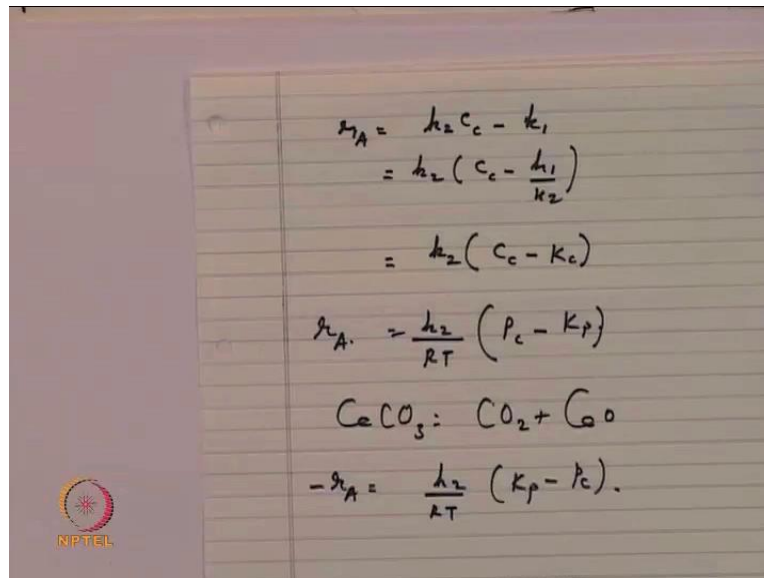 r_A = k_2 C_c - k_1
= k_2 ( C_c - k_1/k_2 )
= k_2 ( C_c - K_c )
r_A. = k_2/RT ( P_c - K_p )
CaCO_3 = CO_2 + CaO
-r_A = k_2/RT ( K_p - P_c ).
NPTEL